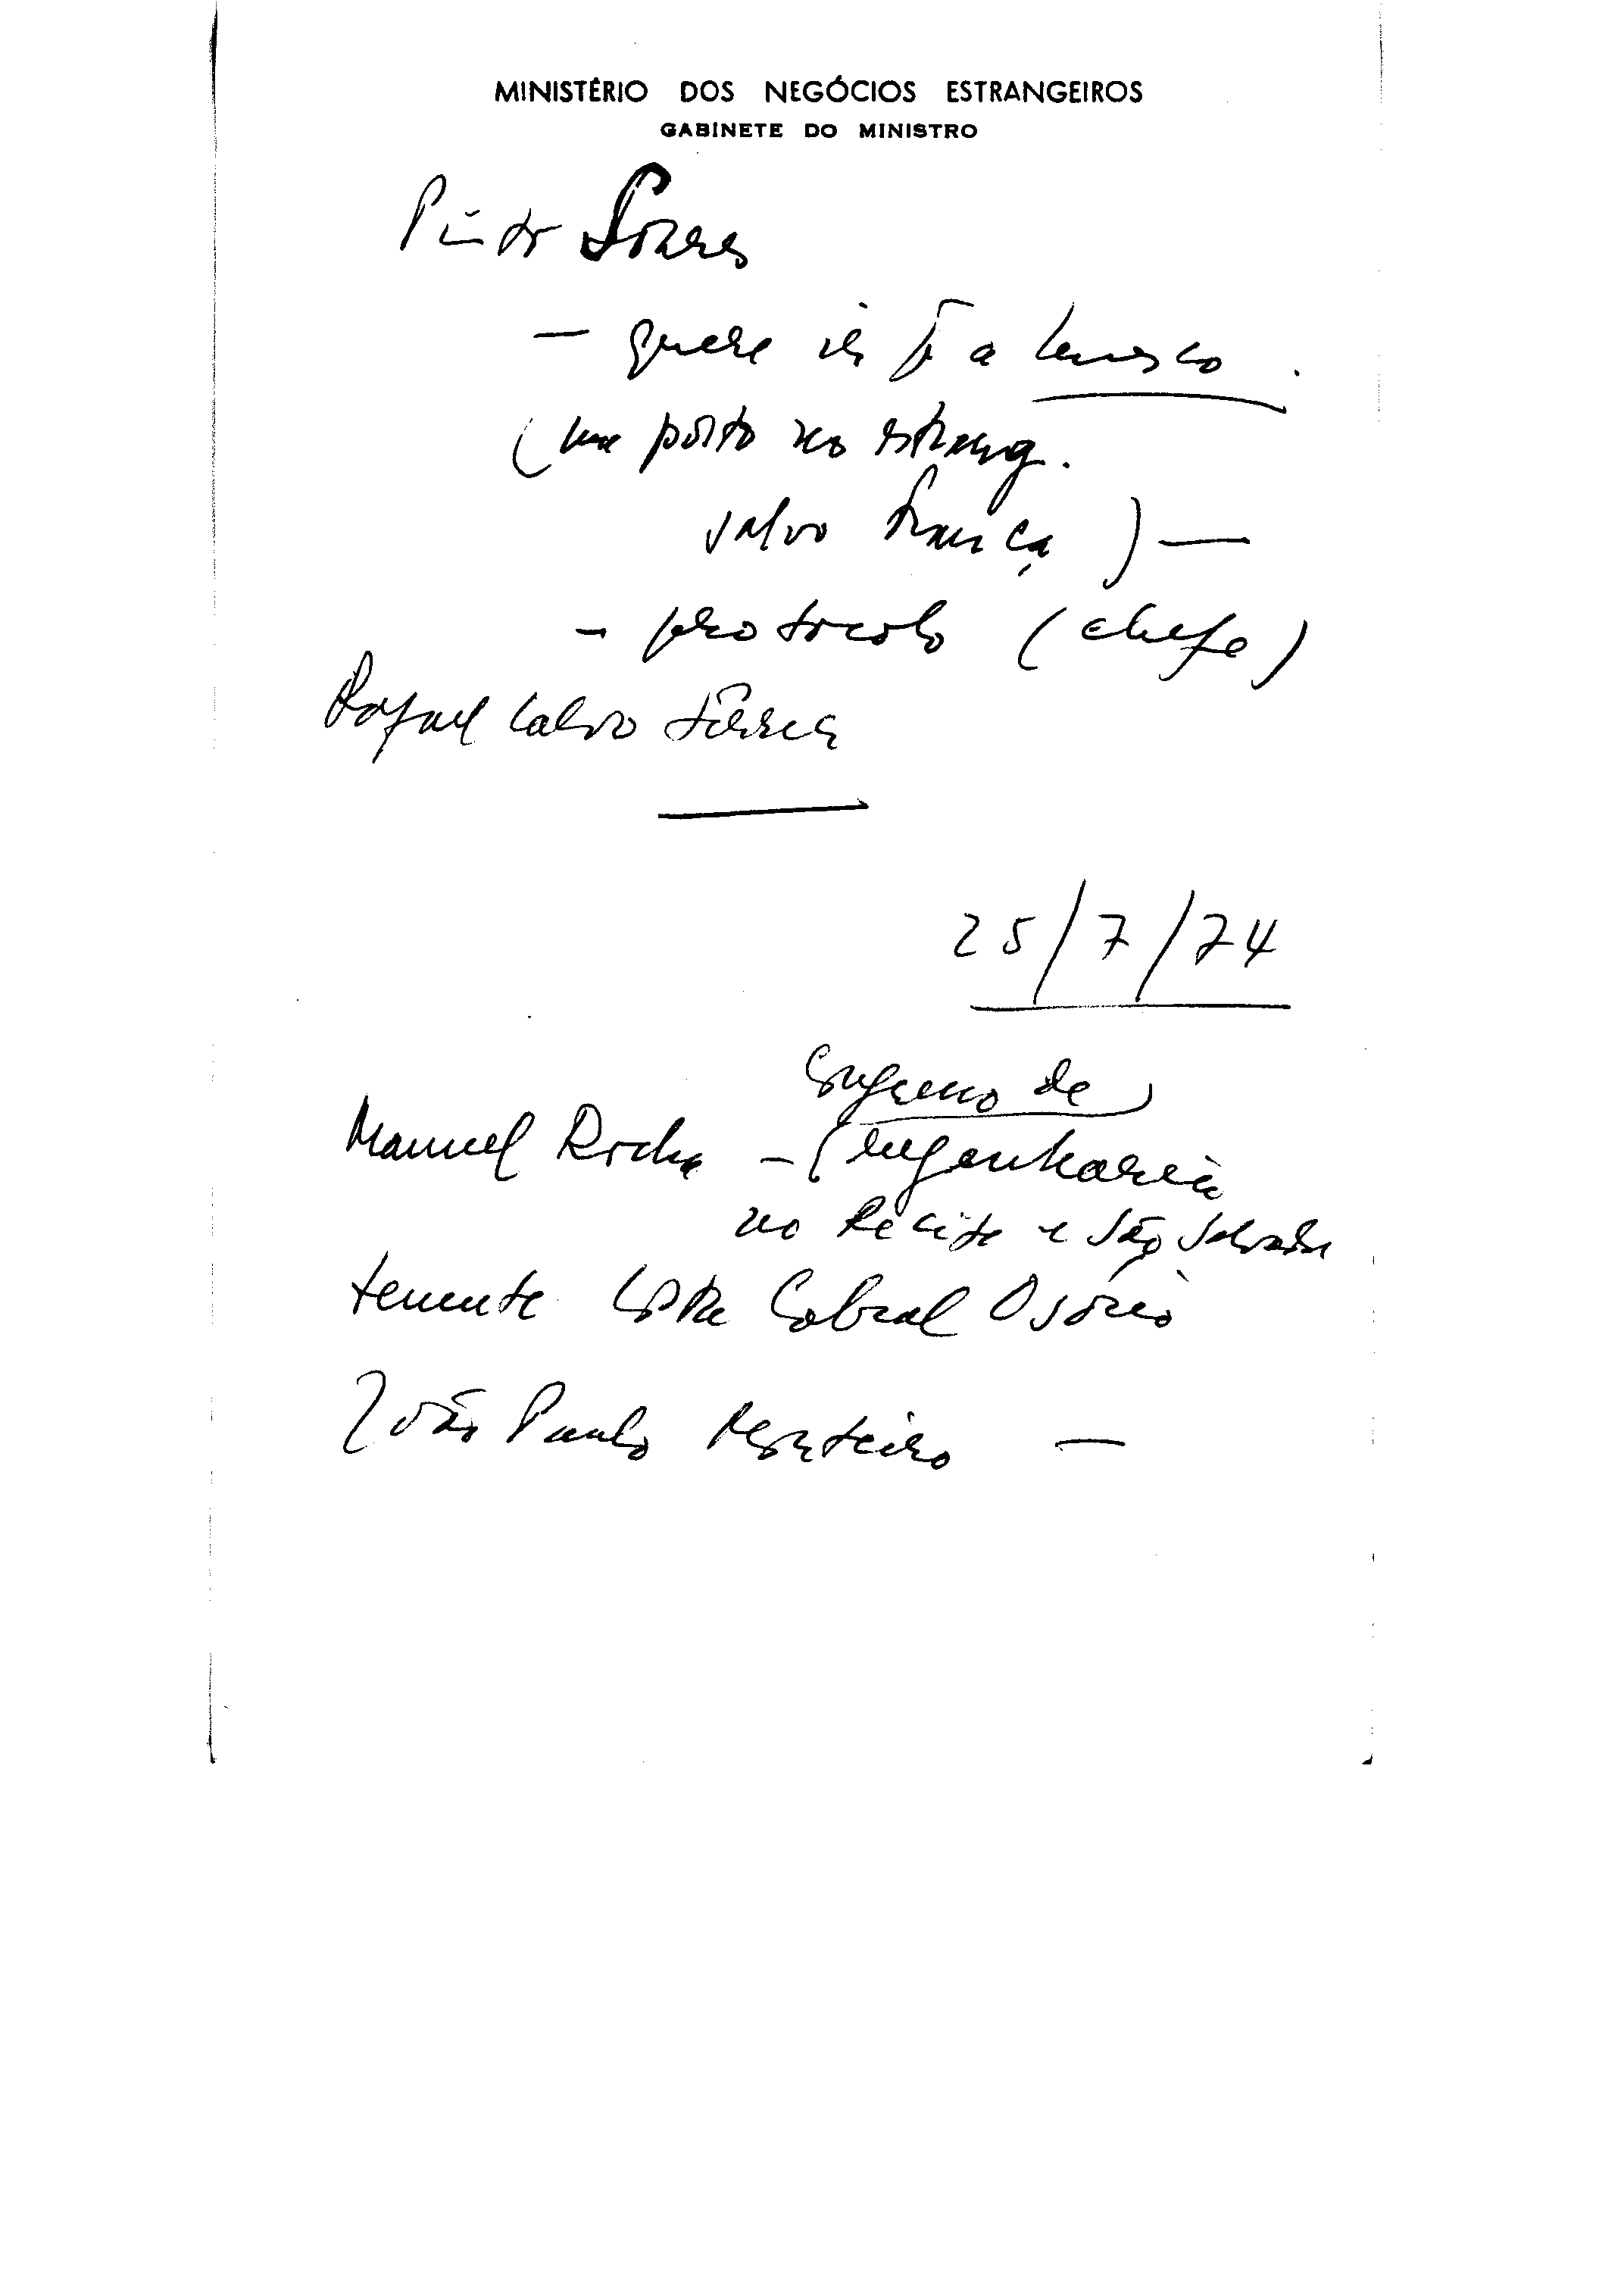 MINISTÉRIO DOS NEGÓCIOS ESTRANGEIROS
GABINETE DO MINISTRO
Pinto Soares
- quere ir pª a Unesco.
(um posto no estrang.
salvo França) —
- protocolo (chefe)
Rafael Calvo
25/7/74
Congresso de
Manuel Rocha - (engenharia
no Recife e São Salvador
tenente Costa Cabral Osório
João Paulo Monteiro —